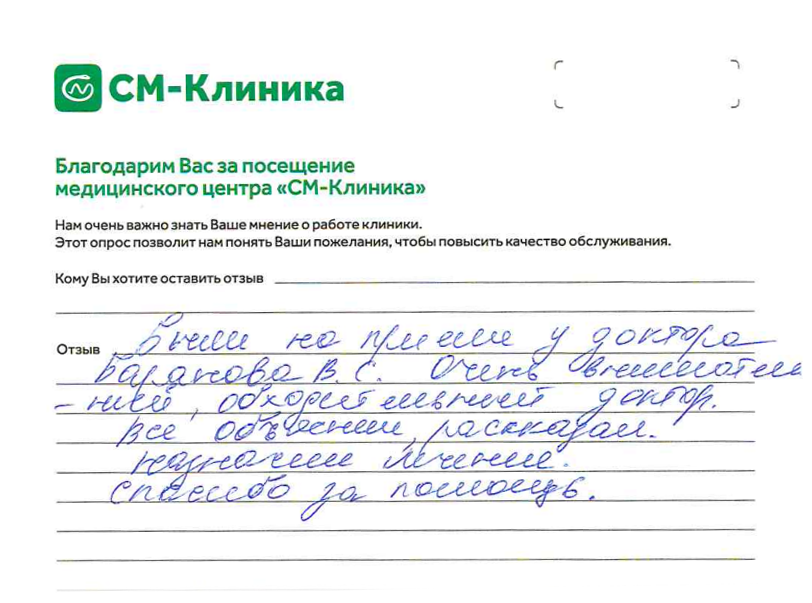 СМ-Клиника
Благодарим Вас за посещение
медицинского центра «СМ-Клиника»
Нам очень важно знать Ваше мнение о работе клиники.
Этот опрос позволит нам понять Ваши пожелания, чтобы повысить качество обслуживания.
Кому Вы хотите оставить отзыв
Отзыв Были на приеме у доктора
Баранова В.С. Очень вниматель
-ный, обходительный доктор.
Все объяснил, рассказал.
Назначил лечение.
Спасибо за помощь.